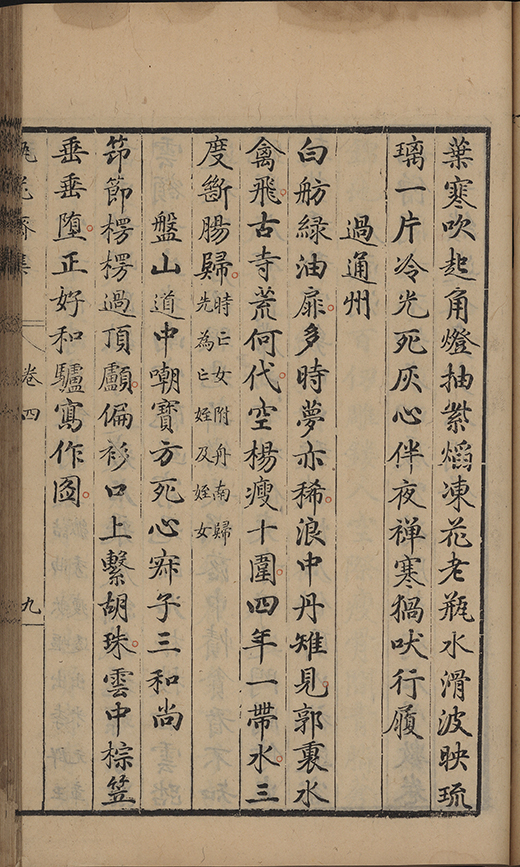 葉寒吹起角燈抽紫熖凍花老瓶水滑波映琉
璃一片冷光死灰心伴夜禅寒猧吠行履
過通州
白舫綠油扉多時夢亦稀浪中丹雉見郭裏水
禽飛古寺荒何代空楊瘦十圍四年一帶水三
度斷腸歸時亡女附舟南歸
先為亡姪及姪女
盤山道中嘲寳方死心寐子三和尚
笻節楞楞過頂顱偏衫口上繫胡珠雲中椶笠
垂垂墮正好和驢寫作圖
瓶花齋集
卷四
九